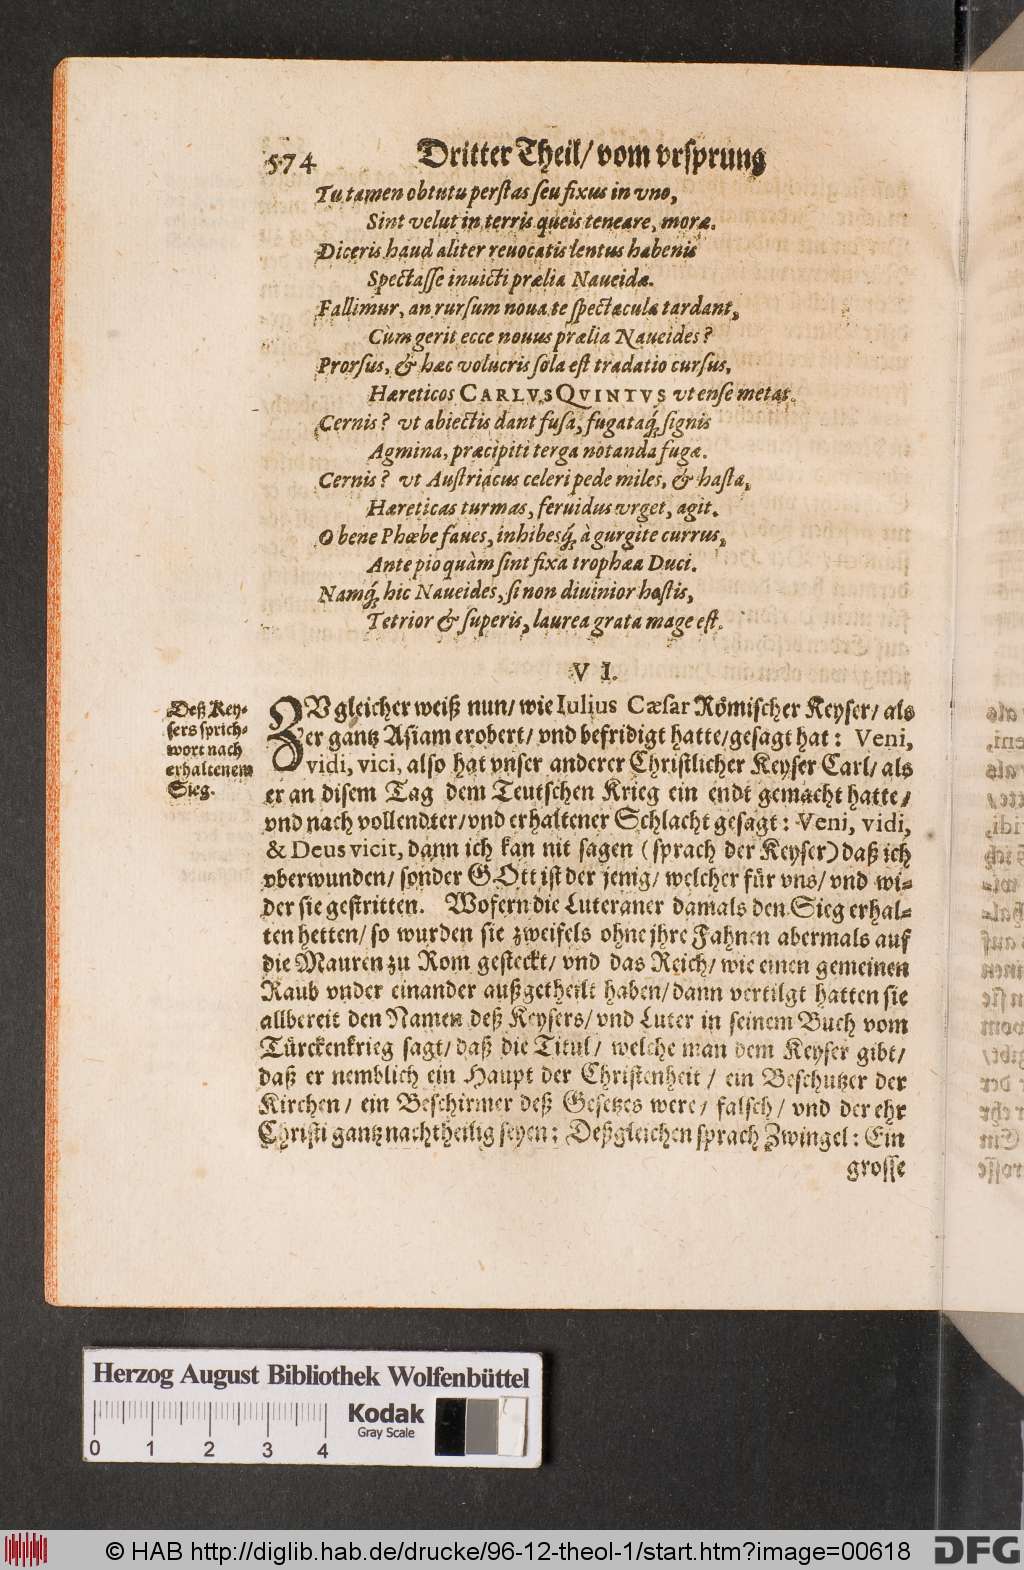 574 Dritter Theil/ vom vrsprung
Tu tamen obtutu perſtas ſeu fixus in vno,
Sint velut in terris queis teneare, moræ.
Diceris haud aliter reuocatis lentus habenis
Spectaſſe inuicti prælia Naueidæ.
Fallimur, an rurſum noua te ſpectacula tardant,
Cùm gerit ecce nouus prælia Naueides?
Prorſus, & hæc volucris ſola eſt tradatio curſus,
Hæreticos CARLVS QVINTVS vt enſe metat.
Cernis? vt abiectis dant fuſa, fugataq́; ſignis
Agmina, præcipiti terga notanda fugæ.
Cernis? vt Auſtriacus celeri pede miles, & haſta,
Hæreticas turmas, feruidus vrget, agit.
O bene Phœbe faues, inhibesq́; à gurgite currus,
Ante pio quàm ſint fixa trophæa Duci.
Namq́; hic Naueides, ſi non diuinior hoſtis,
Tetrior & ſuperis, laurea grata mage eſt.
VI.
Deß Key-
ſers ſprich-
wort nach
erhaltenem
Sieg.
ZV gleicher weiß nun/ wie Iulius Cæſar Römiſcher Keyſer/ als
er gantz Aſiam erobert/ vnd befridigt hatte/ geſagt hat: Veni,
vidi, vici, alſo hat vnſer anderer Chriſtlicher Keyſer Carl/ als
er an diſem Tag dem Teutſchen Krieg ein endt gemacht hatte/
vnd nach vollendter/ vnd erhaltener Schlacht geſagt: Veni, vidi,
& Deus vicit, dann ich kan nit ſagen (ſprach der Keyſer) daß ich
vberwunden/ ſonder GOtt iſt der jenig/ welcher für vns/ vnd wi-
der ſie geſtritten. Wofern die Luteraner damals den Sieg erhal-
ten hetten/ ſo wurden ſie zweifels ohne jhre Fahnen abermals auf
die Mauren zu Rom geſteckt/ vnd das Reich/ wie einen gemeinen
Raub vnder einander außgetheilt haben/ dann vertilgt hatten ſie
allbereit den Namen deß Keyſers/ vnd Luter in ſeinem Buch vom
Türckenkrieg ſagt/ daß die Titul/ welche man dem Keyſer gibt/
daß er nemblich ein Haupt der Chriſtenheit/ ein Beſchutzer der
Kirchen/ ein Beſchirmer deß Geſetzes were/ falſch/ vnd der ehr
Chriſti gantz nachtheilig ſeyen: Deßgleichen ſprach Zwingel: Ein
groſſe
Herzog August Bibliothek Wolfenbüttel
Kodak
Gray Scale
0 1 2 3 4
© HAB http://diglib.hab.de/drucke/96-12-theol-1/start.htm?image=00618
DFG